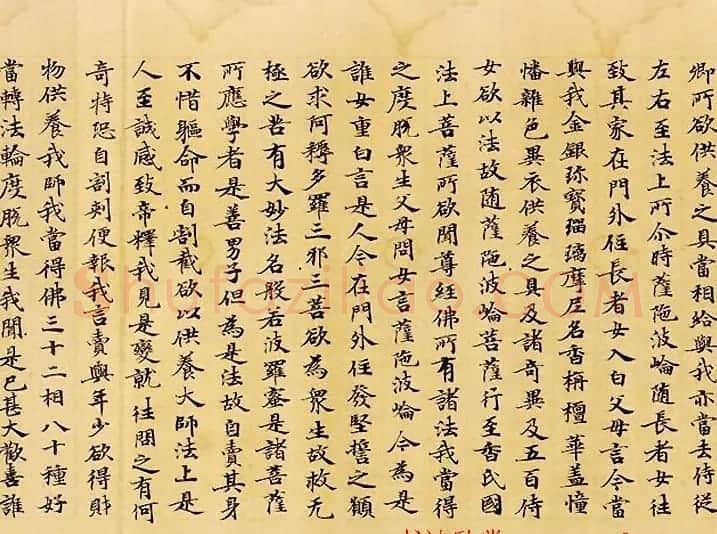 卿所欲供養之具當相給與我亦當去侍從
左右至法上所介時薩陁波崘随長者女往
致其家在門外住長者女入白父母言令當
與我金銀珎寶瑙璃摩尼名香栴檀華盖憧
憣雜色異衣供養之具及諸奇異及五百侍
女欲以法故随薩陁波崘菩薩行至香氏國
法上菩薩所欲聞尊經佛所有諸法我當得
之度脫衆生父母問女言薩陁波崘今為是
誰女重白言是人今在門外住發堅誓之願
欲求阿耨多羅三邪三菩欲為衆生故救无
極之苦有大妙法名般若波羅蜜是諸菩薩
所應學者是善男子但為是法故自賣其身
不惜軀命而自割截欲以供養大師法上是
人至誠感致帝釋我見是變就往問之有何
奇特恐自割刾便報我言賣與年少欲得財
物供養我師我當得佛三十二相八十種好
當轉法輪度脫衆生我聞是已甚大歡喜誰
Shufaziliao.COM